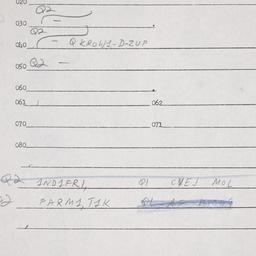 020
Q2
030
Q2
040 - Q KROW1-D-ZUP
050 Q2 -
060
061 062
070 071
080
Q2 1ND1FR1, Q1 CVEJ MOL
Q2 PARM1,T1K